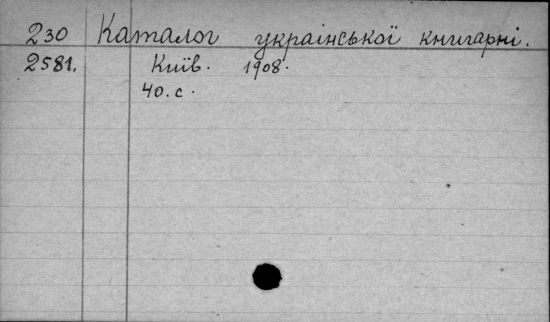 230 Каталог украінської книгарні.
2581. Київ. 1908.
40. с.